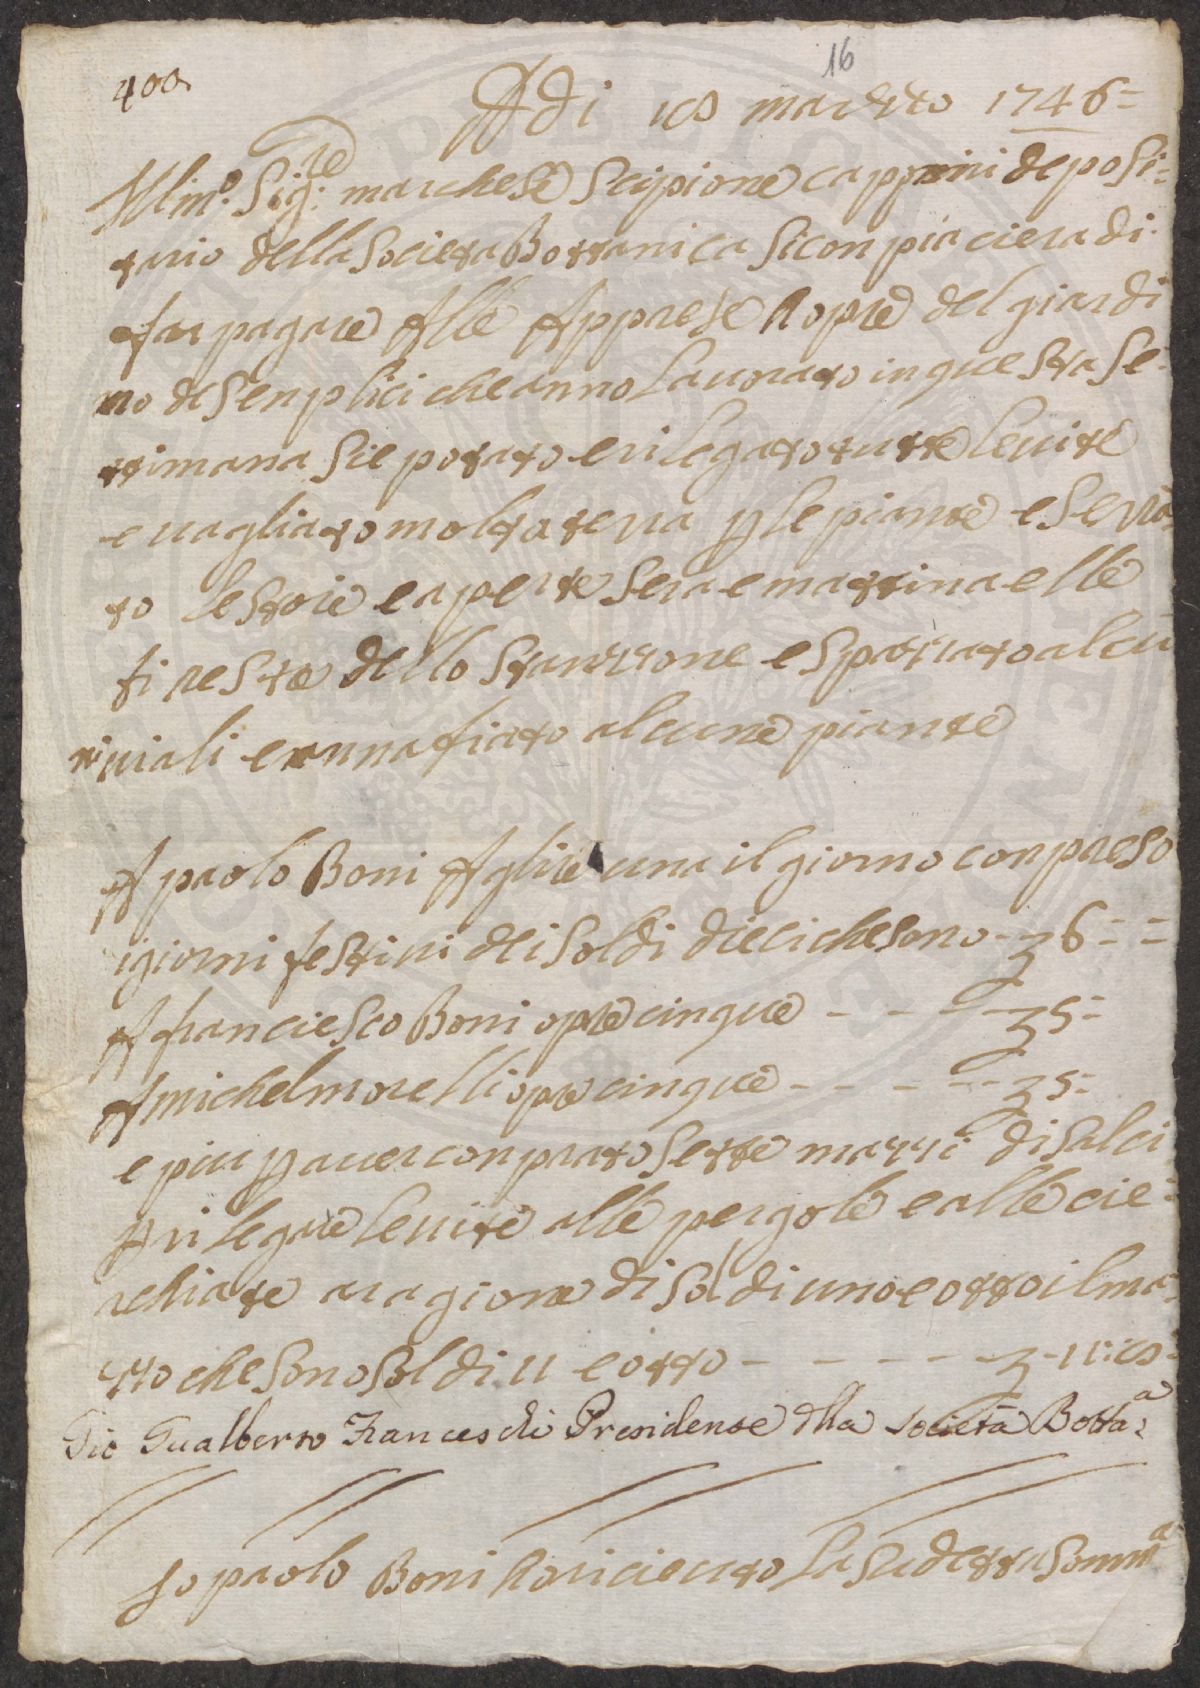 16
400
Adi 18 marzzo 1746=
Ill.mo Sig.re marchese Scipione capponi deposi=
tario della Societa Bottanica si conpiaciera di
far pagare Alle Apprese hopre del giardi
no de Senplici che anno lavorato in questa Se=
ttimana Sie potato e rilegato tutte le vite
e vagliato molta tera p le piante e Sera
to le stoie e aperte Sera e mattina e lle
finestre dello stanzzone e spazzato alcu
ni viali e annafiato alcune piante
A paolo Boni A Lire una il giorno conpreso
i giorni festivi dei soldi dieci che sono - 6 = =
A franciesco Boni opre cinque - - - - 5 =
A michel morelli opre cinque - - - - 5 =
e piu p aver conprato Sette mazzi di Salci
p rilegare le vite alle pergole e alle cie=
rchiate a ragione di Soldi uno e otto il ma
zzo che sono soldi 11 e otto - - - - - 11:8
Gio Gualberto Franceschi Presidente dlla Società Botta:a
Io paolo Boni ho ricieuto La Sudetta Somma